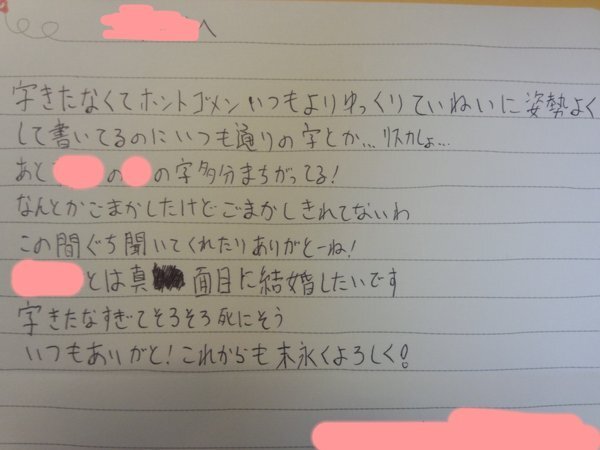 へ
字きたなくてホントゴメンいつもよりゆっくりていねいに姿勢よく
して書いてるのにいつも通りの字とか…リスカしよ…
あと の の字多分まちがってる!
なんとかごまかしたけどごまかしきれてないわ
この間ぐち聞いてくれたりありがとーね!
とは真面目に結婚したいです
字きたなすぎてそろそろ死にそう
いつもありがと!これからも末永くよろしく!